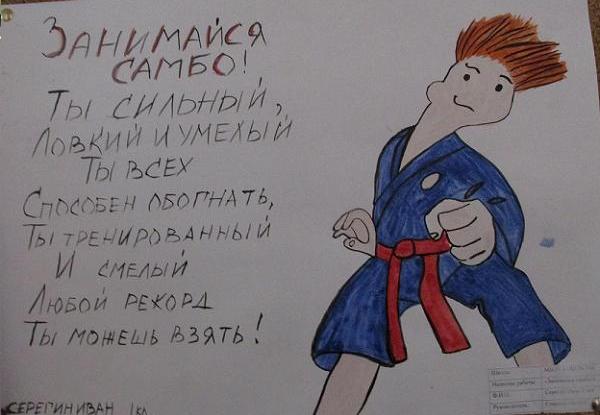 ЗАНИМАЙСЯ
САМБО!
ТЫ СИЛЬНЫЙ,
ЛОВКИЙ И УМЕЛЫЙ
ТЫ ВСЕХ
СПОСОБЕН ОБОГНАТЬ,
ТЫ ТРЕНИРОВАННЫЙ
И СМЕЛЫЙ
ЛЮБОЙ РЕКОРД
ТЫ МОЖЕШЬ ВЗЯТЬ!
СЕРЕГИН ИВАН 1 КЛ
Школа
Название работы
Ф.И.О.
Руководитель